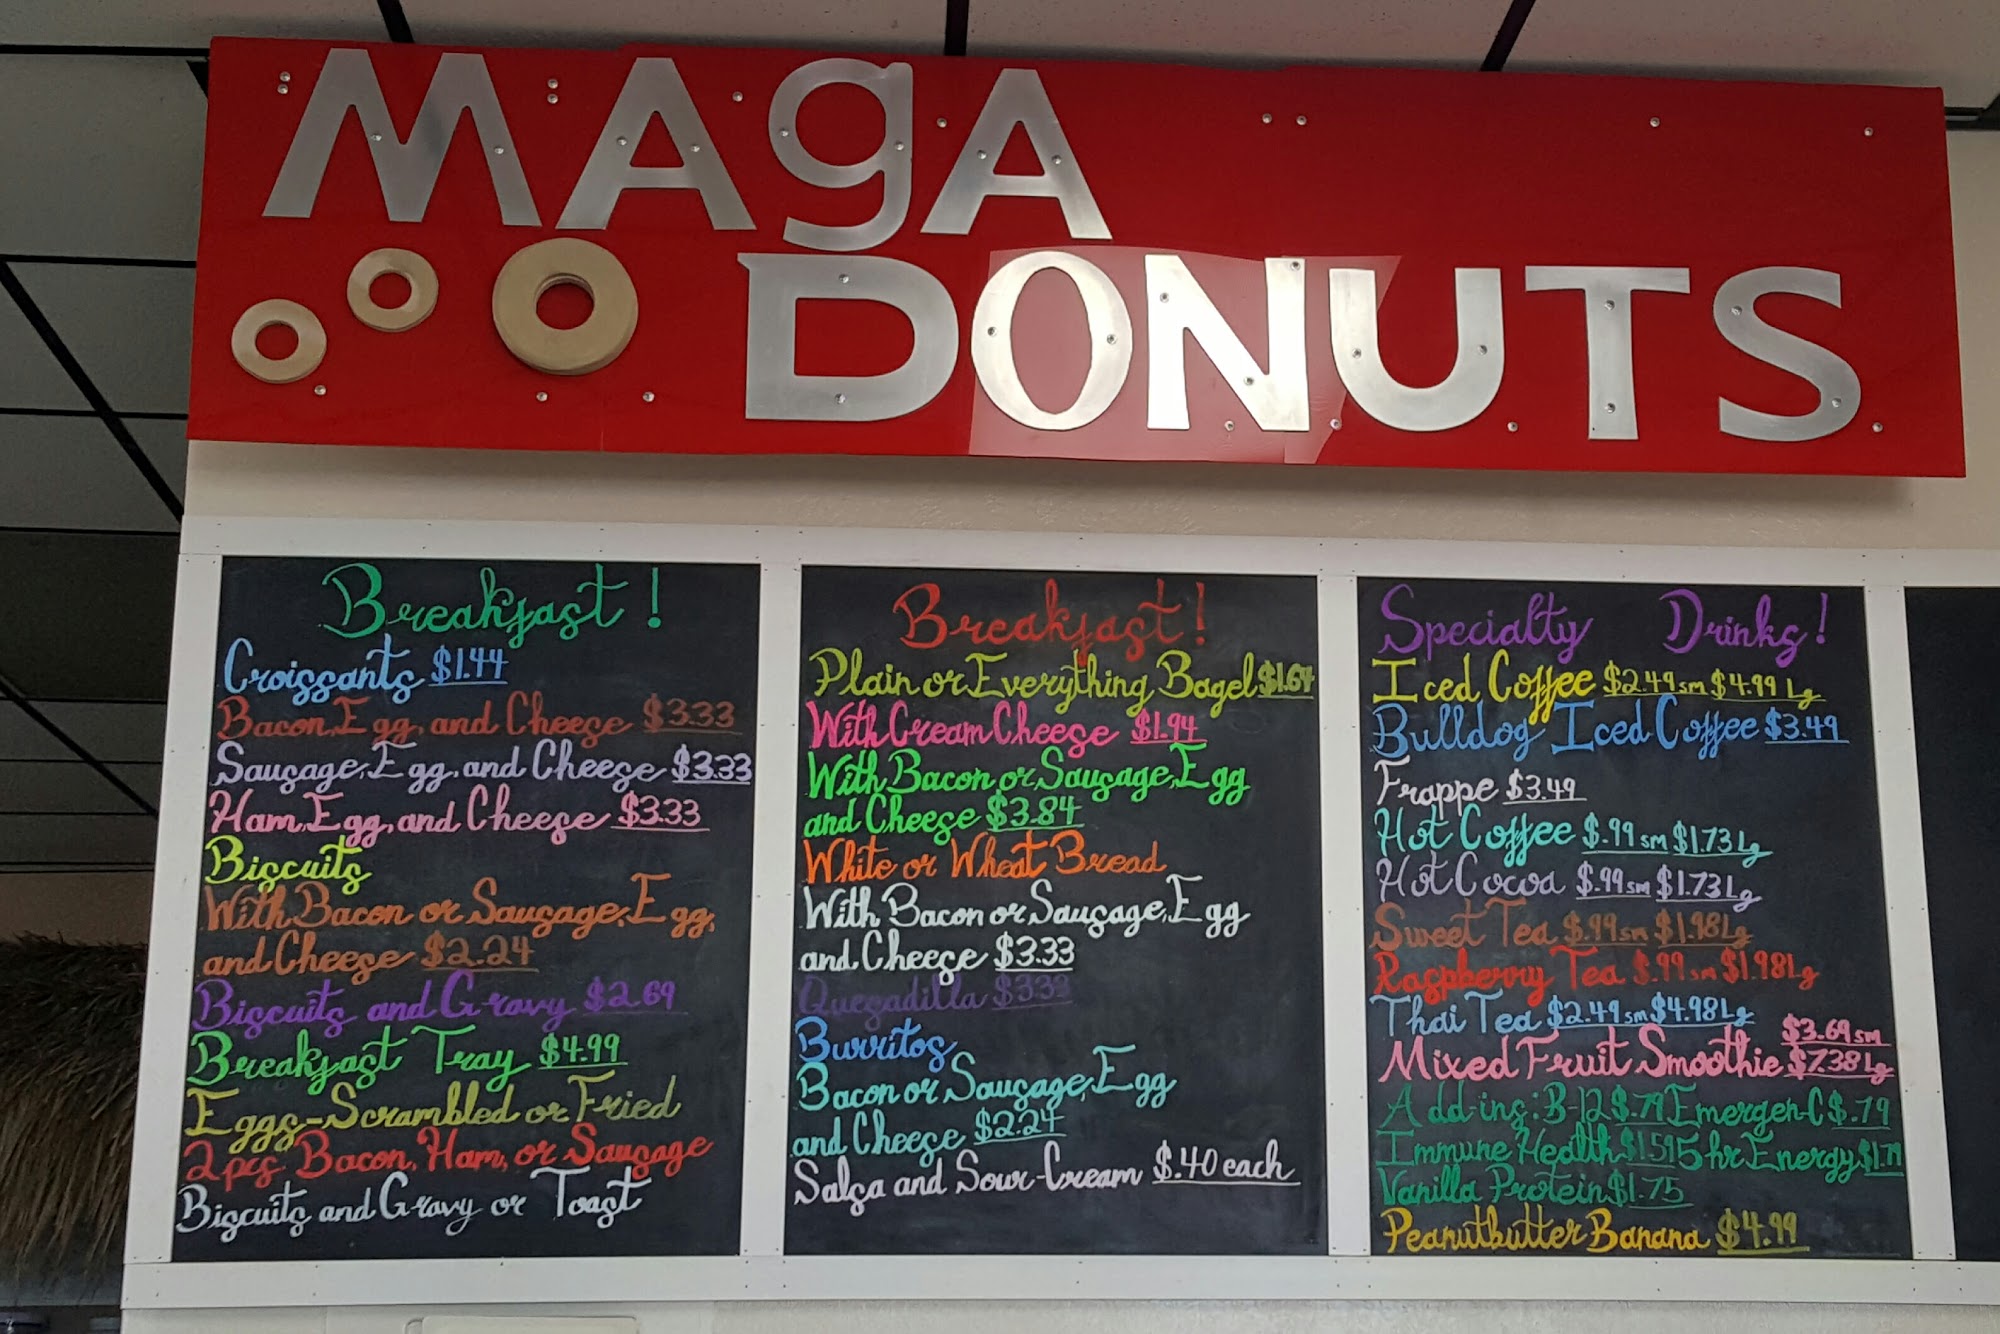 MAgA
DONUTS
Breakfast!
Croissants $1.44
Bacon, Egg, and Cheese $3.33
Sausage, Egg, and Cheese $3.33
Ham, Egg, and Cheese $3.33
Biscuits
With Bacon or Sausage, Egg,
and Cheese $2.24
Biscuits and Gravy $2.69
Breakfast Tray $4.99
Eggs-Scrambled or Fried
2pcs. Bacon, Ham, or Sausage
Biscuits and Gravy or Toast
Breakfast!
Plain or Everything Bagel $1.64
With Cream Cheese $1.94
With Bacon or Sausage, Egg
and Cheese $3.84
White or Wheat Bread
With Bacon or Sausage, Egg
and Cheese $3.33
Quesadilla $3.33
Burritos
Bacon or Sausage, Egg
and Cheese $2.24
Salsa and Sour-Cream $.40 each
Specialty Drinks!
Iced Coffee $2.49 sm $4.99 Lg
Bulldog Iced Coffee $3.49
Frappe $3.49
Hot Coffee $.99 sm $1.73 Lg
Hot Cocoa $.99 sm $1.73 Lg
Sweet Tea $.99 sm $1.98 Lg
Raspberry Tea $.99 sm $1.98 Lg
Thai Tea $2.49 sm $4.98 Lg
$3.69 sm
Mixed Fruit Smoothie $7.38 Lg
Add-ins: B-12 $.79 Emergen-C $.79
Immune Health $1.59 5hr Energy $1.79
Vanilla Protein $1.75
Peanutbutter Banana $4.99